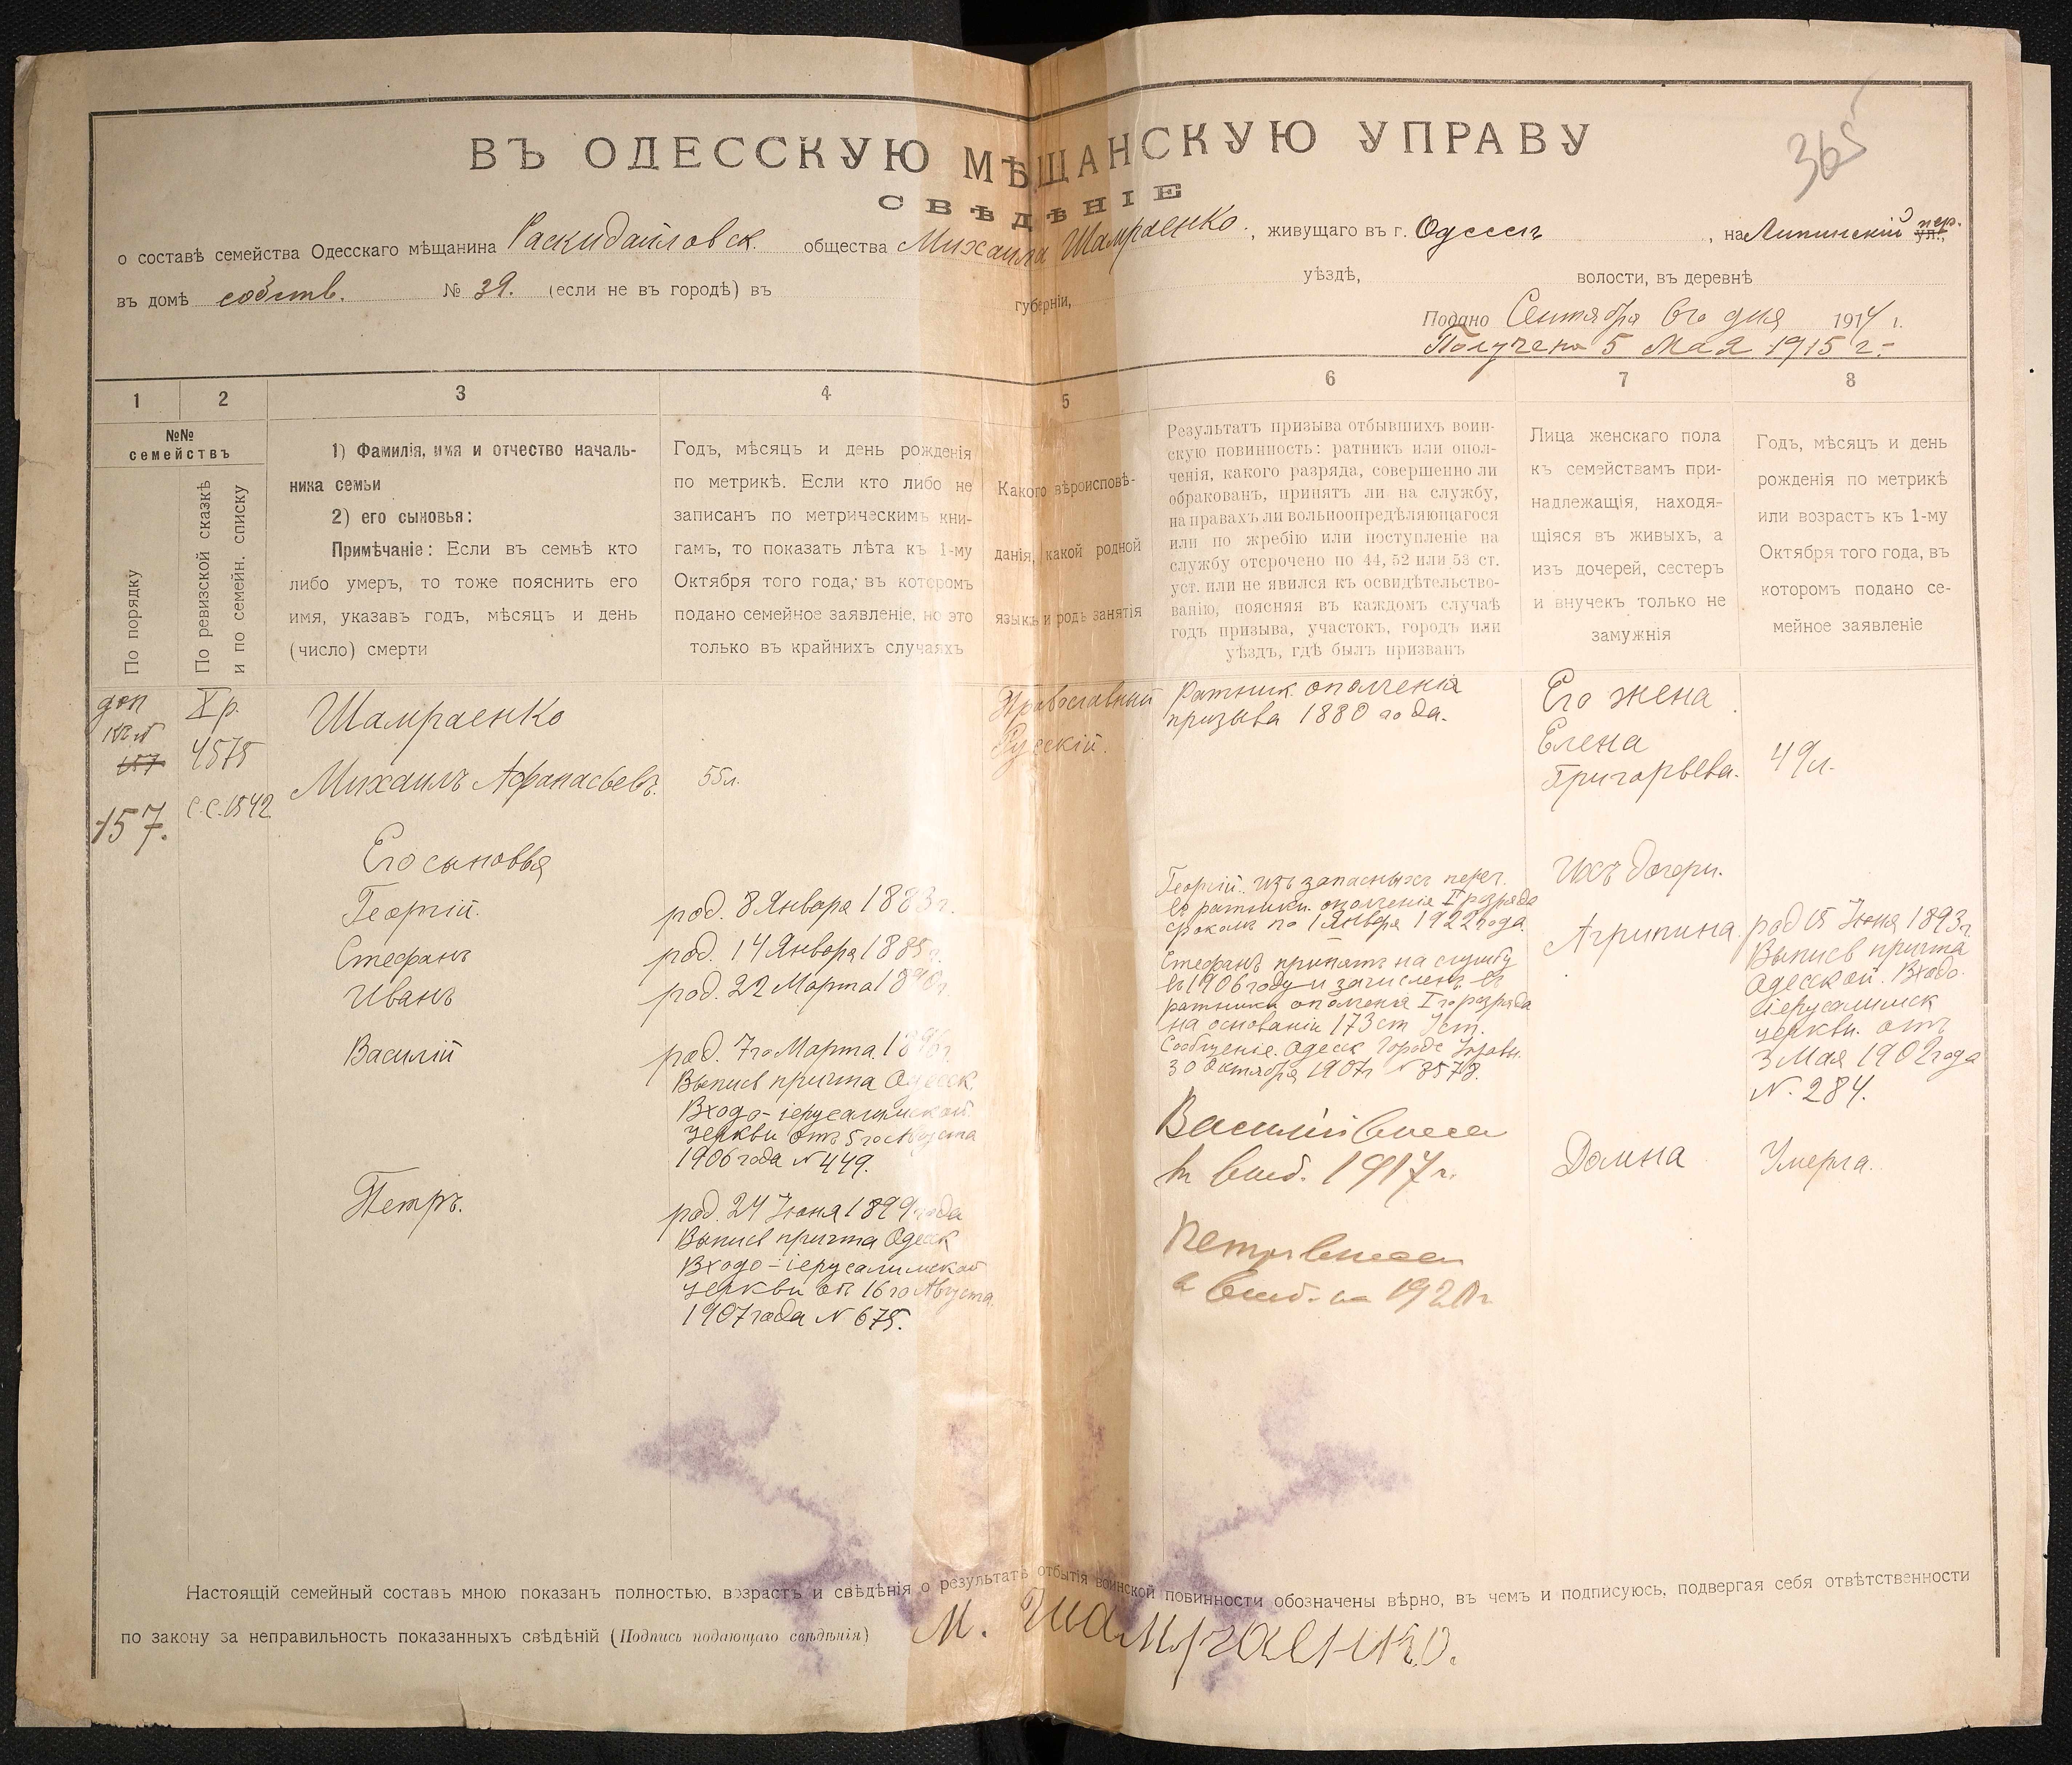 365
ВЪ ОДЕССКУЮ МѢЩАНСКУЮ УПРАВУ
СВѢДѢНІЕ
о составѣ семейства Одесскаго мѣщанина Раскидайловск. общества Михаила Шамраенко, живущаго въ г. Одессѣ, на Липинскій пер. ул.,
въ домѣ собств. № 39. (если не въ городѣ) въ губерніи, уѣздѣ, волости, въ деревнѣ
Подано Сентября 6го дня 1914 г.
Получено 5 Мая 1915 г.
1 2 3 4 5 6 7 8
№№ семействъ
По порядку
По ревизской сказкѣ
и по семейн. списку
1) Фамилія, имя и отчество началь-
ника семьи
2) его сыновья:
Примѣчаніе: Если въ семьѣ кто
либо умеръ, то тоже пояснить его
имя, указавъ годъ, мѣсяцъ и день
(число) смерти
Годъ, мѣсяцъ и день рожденія
по метрикѣ. Если кто либо не
записанъ по метрическимъ кни-
гамъ, то показать лѣта къ 1-му
Октября того года, въ которомъ
подано семейное заявленіе, но это
только въ крайнихъ случаяхъ
Какого вѣроисповѣ-
данія, какой родной
языкъ и родъ занятія
Результатъ призыва отбывшихъ воин-
скую повинность: ратникъ или опол-
ченія, какого разряда, совершенно ли
обракованъ, принятъ ли на службу,
на правахъ ли вольноопредѣляющагося
или по жребію или поступленіе на
службу отсрочено по 44, 52 или 53 ст.
уст. или не явился къ освидѣтельство-
ванію, поясняя въ каждомъ случаѣ
годъ призыва, участокъ, городъ или
уѣздъ, гдѣ былъ призванъ
Лица женскаго пола
къ семействамъ при-
надлежащія, находя-
щіяся въ живыхъ, а
изъ дочерей, сестеръ
и внучекъ только не
замужнія
Годъ, мѣсяцъ и день
рожденія по метрикѣ
или возрастъ къ 1-му
Октября того года, въ
которомъ подано се-
мейное заявленіе
доп
157
157.
X р.
4575
С.С. 1542
Шамраенко
Михаилъ Афанасьевъ.
55 л.
Православный
Русскій.
Ратник ополченія
призыва 1880 года.
Его жена
Елена
Григорьева.
49 л.
Его сыновья
Георгій.
род. 8 Января 1883 г.
Стефанъ
род. 14 Января 1885 г.
Иванъ
род. 22 Марта 1890 г.
Василій
род. 7го Марта 1896 г.
Выпись причта Одесск.
Входо-іерусалимской
церкви отъ 5го Августа
1906 года № 449.
Петръ.
род. 24 Іюня 1899 года
Выпись причта Одесск
Входо-іерусалимской
церкви от 16го Августа
1907 года № 675.
Георгій изъ запасныхъ переч.
въ ратники ополченія I разряда
срокомъ по 1 Января 1922 года.
Стефанъ принятъ на службу
въ 1906 году и зачисленъ въ
ратники ополченія I го разряда
на основаніи 173 ст Уст.
Сообщеніе. Одесск Городс Управы.
30 Октября 1907 г № 8578.
Василій внесен
в 1917 г.
Петр внесен
1920 г
Ихъ дочери.
Агрипина.
род 15 Іюня 1893 г.
Выпись причта
Одесской. Входо-
іерусалимск
церкви. отъ
3 Мая 1902 года
№. 284.
Домна
Умерла.
Настоящій семейный составъ мною показанъ полностью, возрастъ и свѣдѣнія о результатѣ отбытія воинской повинности обозначены вѣрно, въ чемъ и подписуюсь, подвергая себя отвѣтственности
по закону за неправильность показанныхъ свѣдѣній (Подпись подающаго свѣдѣнія) М. Шамраенко.